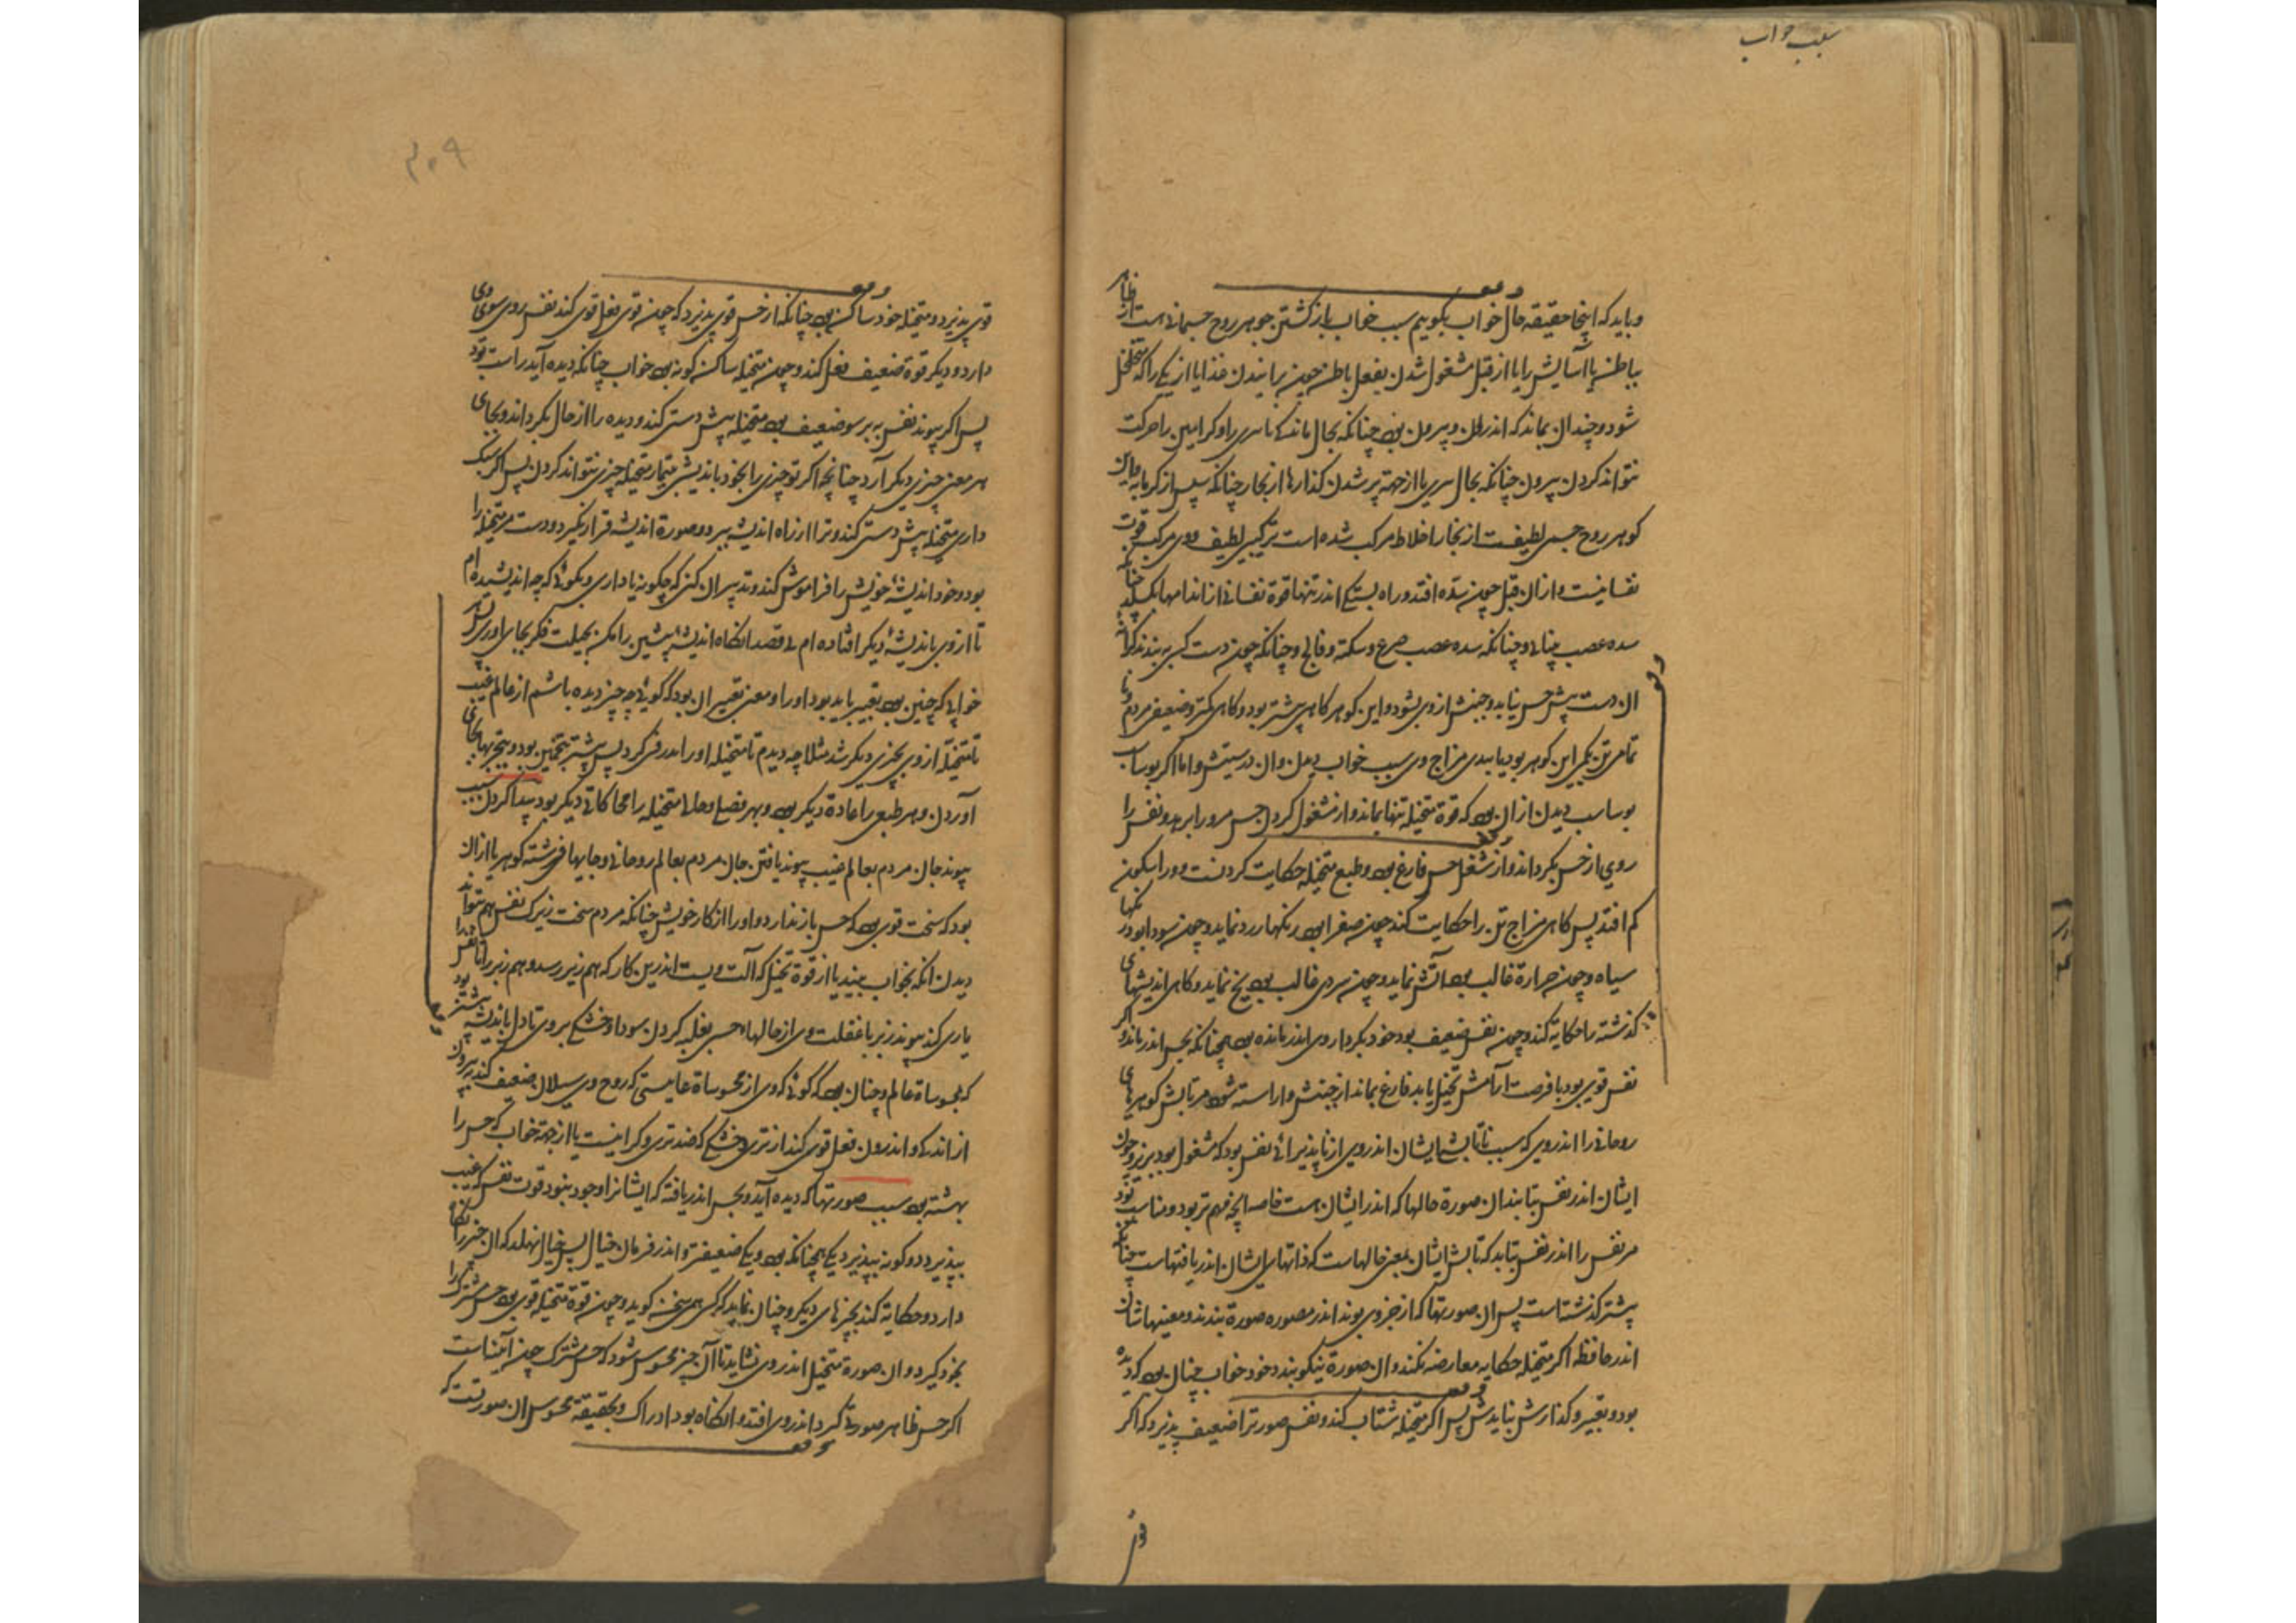 سبب خواب
و باید که اینجا حقیقه حال خواب بگوییم سبب خواب باز گشتن جوهر روح جسمانی است از ظاهر
بباطن یا آسایش را یا از قبل مشغول شدن بفعل باطن چون پزانیدن غذا یا از یکی را که متخلخل
شود و چندان نماند که اندرون و بیرون بود چنانکه بحال ماندگی یا سری را و کرا این را حرکت
نتواند کردن بیرون چنانکه بحال سری یا از جهة پر شدن کذارها از بخار چنانکه سپس از کرمابه
کوهر روح جسمی لطیفست از بخار اخلاط مرکب شده است ترکیبی لطیف و وی مرکب قوت
نفسانیست و از آن قبل چون سده افتد و راه بستگی اندر تنها قوة نفسانی از اندامها بگسلد چنانکه
سده عصب بینائی و چنانکه سده عصب صرع و سکته و فالج و چنانکه چون دست کسی به بندند
آن دست پیش حس نیابد و جنبش از وی بشود و این کوهر کاهی بیشتر بود و کاهی کمتر و ضعیفی مردم
تمامی تن بکمی این کوهر بود یا ببدی مزاج وی سبب خواب دیدن و آن درستیش و اما اکر بوساب
بوساب دیدن از آن بود که قوة متخیله تنها بماند و از مشغول کردن حس مرورا برهد و نفس را
روی از حس بکرداند و از شغل حس فارغ بود و طبع متخیله حکایت کردنست و ورا سکون
کم افتد پس کاهی مزاج تن را حکایت کند چون صفرا بود رنکها زرد نماید و چون سودا بود رنکها
سیاه و چون حرارة غالب بود آتش نماید و چون سردی غالب بود یخ نماید و کاهی اندیشهای
کذشته را حکایه کند و چون نفس ضعیف بود خود بکردار وی اندر مانده بود همچنانکه بحس اندر ماند و اکر
نفس قوی بود با فرصت آرامش تخیل یابد فارغ بماند از جنبش و آراسته شود مر تابش کوهرهای
روحانی را اندر وی که سبب ناتابشهایشان اندر وی از ناپذیرائی نفس بود که مشغول بود بزیر و چون
ایشان اندر نفس بتابند آن صورة حالها که اندر ایشان است خاصه آنچه مهم تر بود و مناسب بود
مر نفس را اندر نفس بتابد که تابش ایشان بمعنی حالهاست که ذاتهای ایشان اندر یافتهاست چنانکه
پیشتر کذشتست پس آن صورتها که از جزوی بوند اندر مصوره صورة بندند و معنیهاشان
اندر حافظه اکر متخیله حکایه معارضه نکند و آن صورة نیکو بندد خود خواب چنان بود که دیده
بود و بتعبیر و کذارش نیایدش پس اکر متخیله شتاب کند و نفس صورتها ضعیف پذیرد که اکر
قوی
۴۰۹
قوی پذیرد و متخیله خود ساکن بود چنانکه از حس قوی پذیرد که چون قوی فعل قوی کند نفس روی سوی وی
دارد و دیگر قوة ضعیف فعل کند و چون متخیله ساکن کونه بود خواب چنانکه دیده آید راست بود
پس اکر پیوند نفس به برسو ضعیف بود متخیله پیش دستی کند و دیده را از حال بکرداند و بجای
هر معنی چیزی دیکر آرد چنانچه اکر تو چیزی را بخود باندیشی بتیمار متخیله چیزی نتواند کردن پس اکر سبک
داری متخیله پیش دستی کند و ترا از راه اندیشه ببرد و صورة اندیشه قرار نکیرد و دست مر متخیله را
بود و خود اندیشۀ خویش را فراموش کند و تدبیر آن کنی که چکونه یاد آری و بگوئی که چه اندیشیده ام
تا از وی باندیشۀ دیکر افتاده ام بقصد آنکاه اندیشۀ پیشین را ممکن بحیلت فکر بجای آوری پس
خوابی که چنین بود بتعبیر باید بود او را و معنی تعبیر آن بود که گوئی چه چیز دیده باشم از عالم غیب
تا متخیله از وی بچیزی دیکر شد مثلا چه دیدم تا متخیله او را بدرختی کرد پس بیشتر بتخمین بود و بتجربها بجای
آوردن و هر طبعی را عادة دیکر بود و بهر فصلی و حالی متخیله را محاکاتی دیکر بود پیدا کردن سبب
پیوند جان مردم بعالم غیب پیوند یافتن جان مردم بعالم روحانی و جایها فرشته کوهر یا از آن
بود که سخت قوی بود که حس باز ندارد و او را از کار خویش چنانکه مردم سخت زیرک نفس هم بتواند
دیدن آنکه بخواب بیند یا از قوة تخیل که آلت ویست اندرین کار که هم زیر رسد و هم زبر را تا نفس را
یاری کند پیوند زبر با غفلت وی از حالهاء حسی بغلبه کردن سودا و خشکی بر وی تا دل باندیشه بیشتر بود
که بمحسوساة عالم و چنان بود که گوئی که وی از محسوساة غایبستی که روح وی سیلان ضعیف کند بیرون
از اندکی و اندرون فعل قوی کند از تری و خشکی که ضد تری و کرانیست یا از جهة خواب که حس را
بهشته بود سبب صورتها که دیده آید و بحس اندر یافته که ایشانرا وجود نبود قوت نفس که غیب
بپذیرد دو کونه بپذیرد یکی همچنانکه بود و یکی ضعیفتر و اندر فرمان خیال پس خیال نهلد که آن چیز را نکاه
دارد و حکایة کند بچیزهای دیکر و چنان نماید که کسی همی سخن کوید و چون قوة متخیله قوی بود حس مشترک را
بخود کیرد و آن صورة متخیل اندر وی نشاید تا آن چیز محسوس شود که حس مشترک چون آئینه است
اکر حس ظاهر صورتی کرد اندر وی افتد و آنکاه بود ادراک و بحقیقة محسوس آن صورتست که